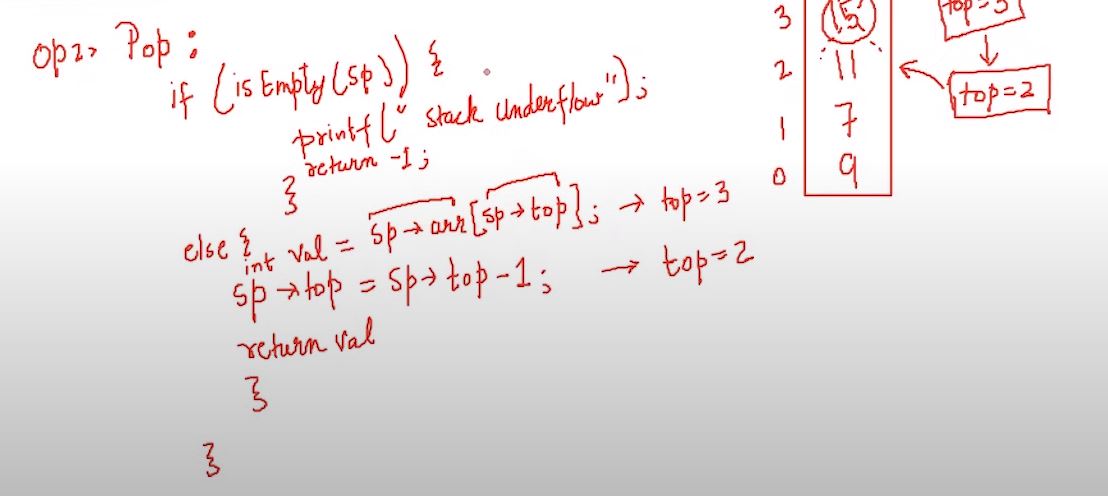 op2> Pop :
if (isEmpty(sp)) {
printf(" stack underflow");
return -1;
}
else {
int val = sp→arr[sp→top]; → top=3
sp→top = sp→top-1; → top=2
return val
}
}
3 15
2 11
1 7
0 9
top=3
top=2